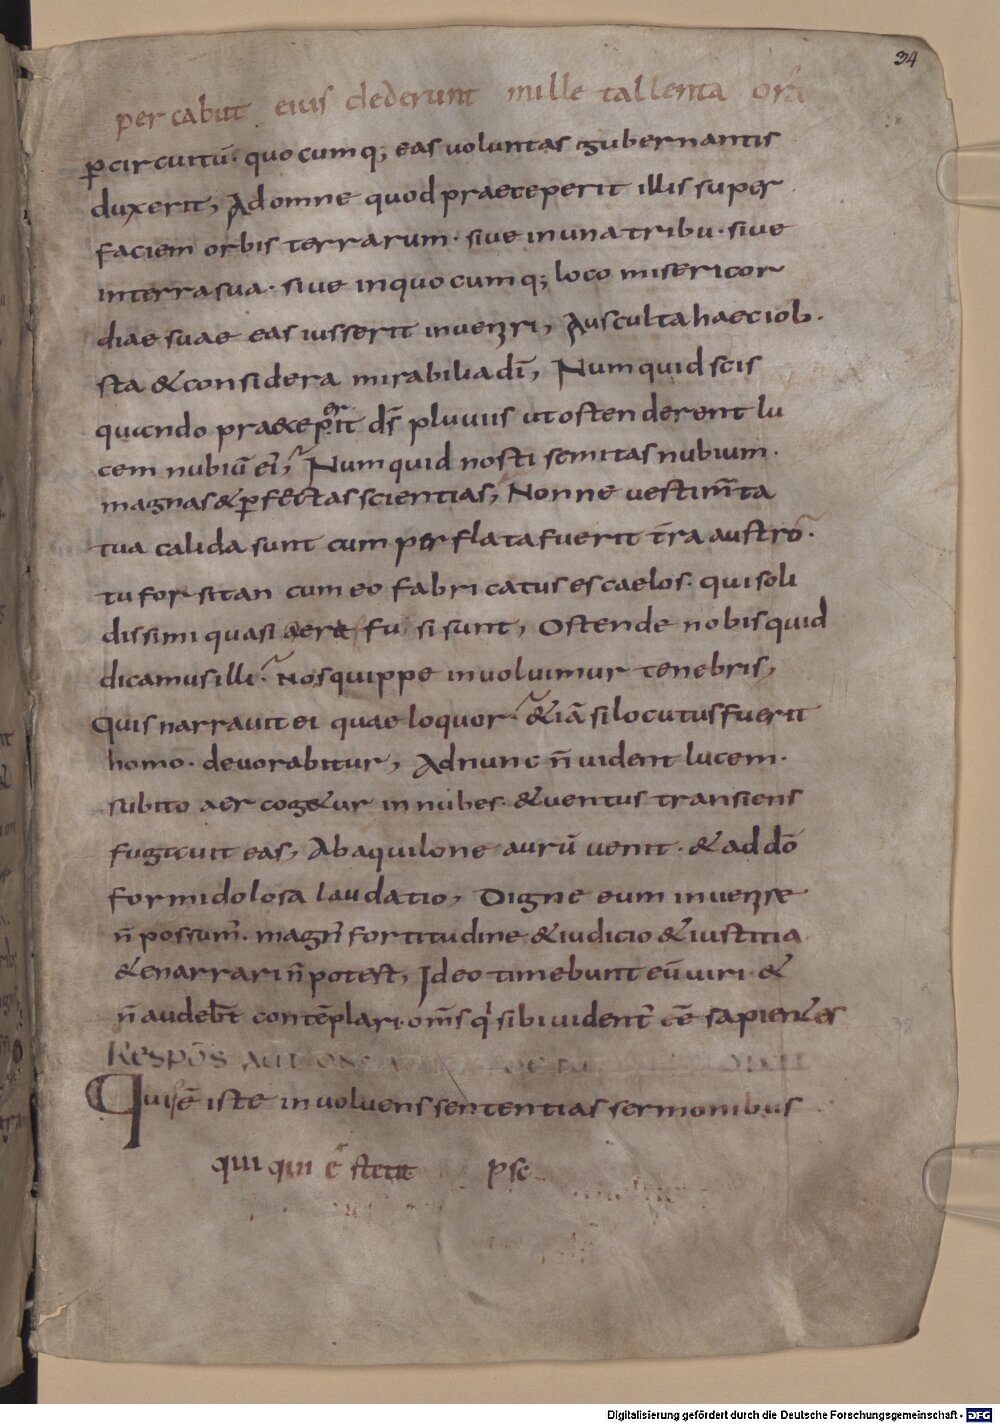 34
per cabut eius dederunt mille tallenta
ꝑcircuitū· quocumq; eas voluntas gubernantis
duxerit, Adomne quod praeceperit illis super
faciem orbis terrarum· sive inuna tribu· sive
interrasua· sive inquocumq; loco misericor
diae suae eas iusserit inveniri, Ausculta haec iob·
sta &considera mirabilia dī, Numquid scis
quando praeceperit ds̄ pluviis ut ostenderent lu
cem nubiū ei', Numquid nosti semitas nubium·
magnas &ꝑfectas scientias, Nonne vestim̄ta
tua calida sunt cum perflata fuerit t̄ra austro·
tu forsitan cum eo fabricatus es caelos· qui soli
dissimi quasi aere fusi sunt, Ostende nobis quid
dicamus illi· Nos quippe involvimur tenebris,
Quis narravit ei quae loquor· &iā si locutus fuerit
homo· devorabitur, Adnunc n̄ vident lucem·
subito aer cog&ur in nubes· &ventus transiens
fugavit eas, Abaquilone aurū venit· &ad dō
formidolosa laudatio, Digne eum invenire
n̄ possum'· magn' fortitudine &iudicio &iustitia
&enarrari n̄ potest, Ideo timebunt eū viri· &
n̄ audebt̄ contēplari· om̄s qi sibi vident' eē sapien&es
Respōs
Quis ē iste involvens sententias sermonibus
qui qui ē stetit psc
Digitalisierung gefördert durch die Deutsche Forschungsgemeinschaft - DFG